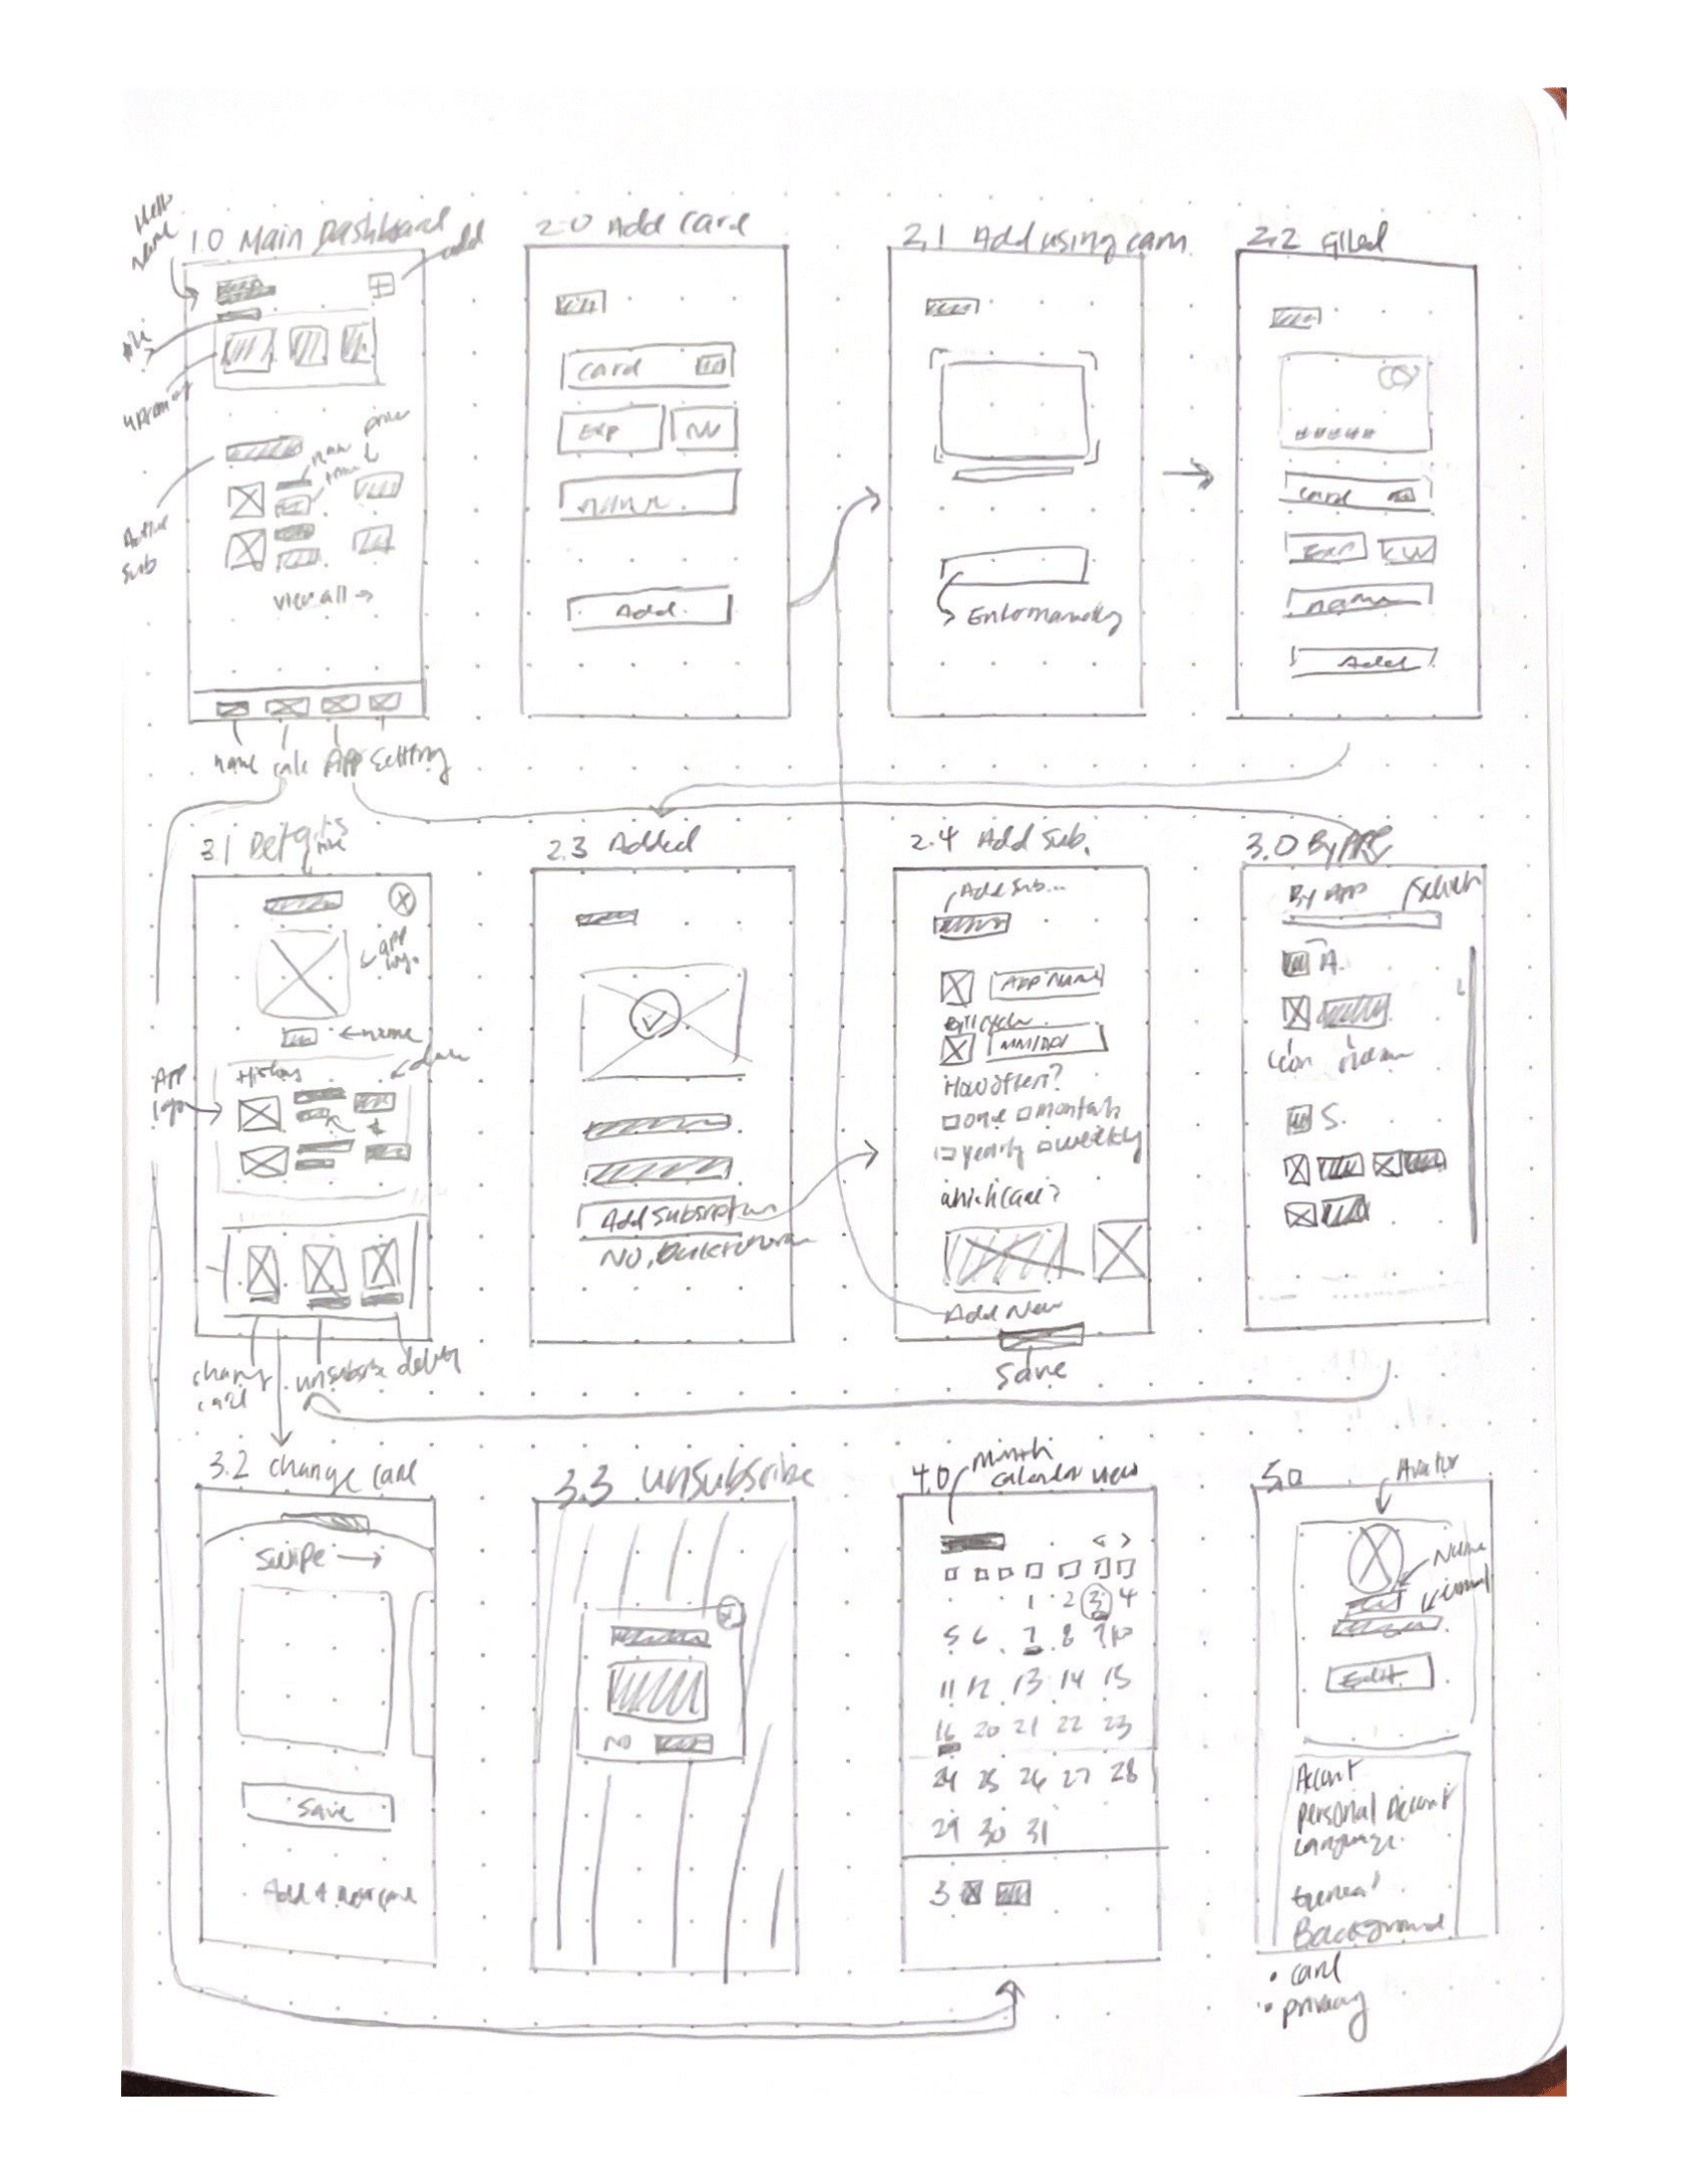 Hello
Name
1.0 Main Dashboard
add
upcoming
Active
Sub
name
price
view all →
calc App Setting
2.0 Add Card
card
Exp
name
Add
2.1 Add using cam
2.2 filled
card
Exp
name
Add
3.1 Details
app
logo
← name
App
logo
History
date
$
chang
card
unsubsribe
2.3 Added
Add subsription
2.4 Add Sub.
Add Sub...
APP Name
Bill cycle
MM/DD/
How often?
one month
yearly weekly
which Care?
Add New
Save
3.0 By APP
By APP
Search
A.
icon
S.
3.2 change card
Swipe →
Save
Add A new card
3.3 unsubscribe
NO
4.0 Month
calendar view
< >
1 2 3 4
5 6 7 8 9 10
11 12 13 14 15
16 20 21 22 23
24 25 26 27 28
29 30 31
3
5.0
Avatar
Name
email
Edit
Account
personal Account
Language
General
Background
• card
• privacy